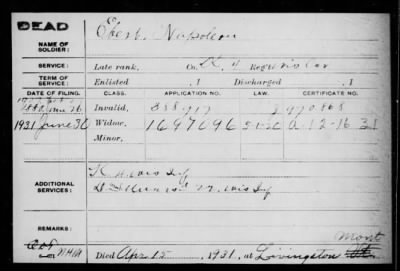 DEAD
NAME OF SOLDIER: Ebert, Napoleon
SERVICE: Late rank, Co. Reg't Wis Cav
TERM OF SERVICE: Enlisted , 1 Discharged , 1
DATE OF FILING. CLASS. APPLICATION NO. LAW. CERTIFICATE NO.
1880 Invalid, 388717 970868
1931 June 30 Widow, 1697096 A-12-16-31
Minor,
ADDITIONAL SERVICES: K Wis Inf
Wis Inf
REMARKS:
Mont
Died Apr. 15, 1931, at Livingston